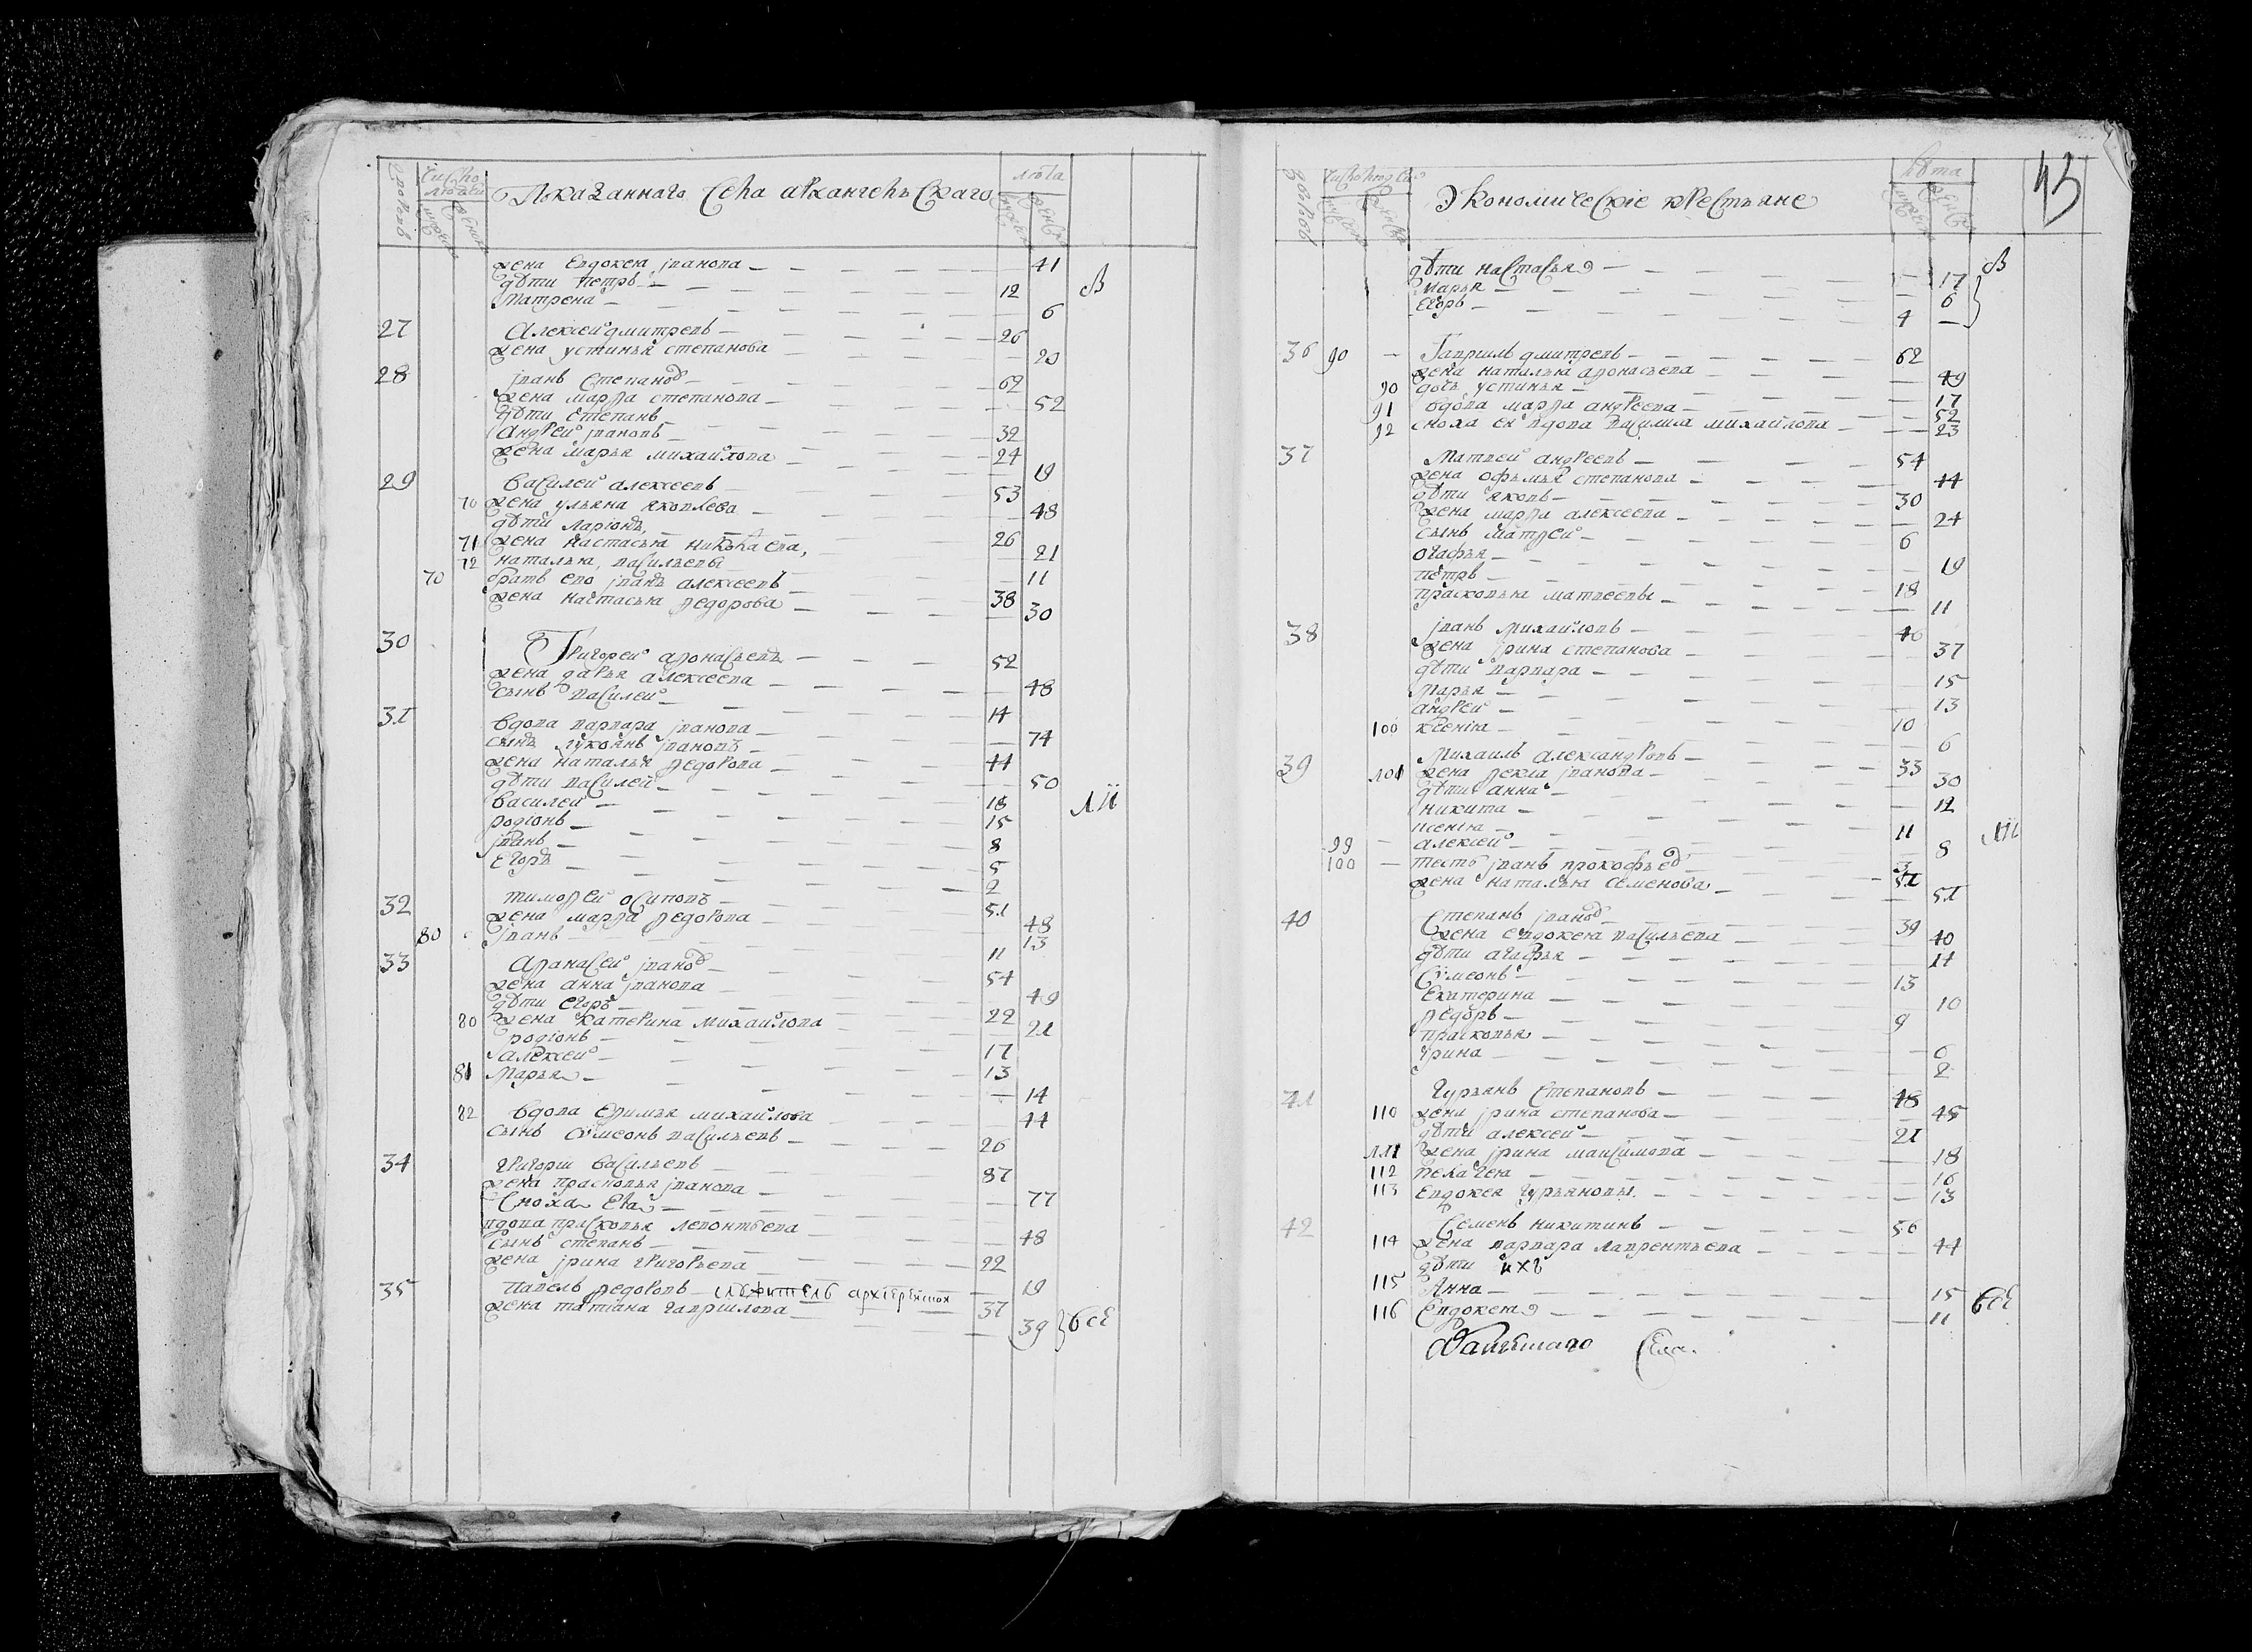 число людей
лѣта
Показанного села архангельскаго
жена евдокея іванова — 41
дѣти петръ — 12
матрена — 6
В
27 алексей дмитревъ — 26
жена устинья степанова — 20
28 іванъ степановъ — 62
жена марѳа степанова — 52
дѣти степанъ — 32
андрей івановъ — 24
жена марья михайлова — 19
29 василей алексеевъ — 53
70 жена ульяна яковлева — 48
дѣти ларіонъ — 26
71 жена настасья николаева, — 21
72 наталья, васильевы — 11
70 братъ ево іванъ алексеевъ — 38
жена настасья ѳедорова — 30
30 Григорей аѳонасьевъ — 52
жена дарья алексеева — 48
сынъ василей — 14
31 вдова варвара іванова — 74
сынъ лукоянъ івановъ — 44
жена наталья ѳедорова — 50
дѣти василей — 18
василей — 15
родіонъ — 8
іванъ — 5
егоръ — 2
32 тимоѳей осиповъ — 51
жена марѳа ѳедорова — 48
13
80 іванъ — 11
33 аѳанасей івановъ — 54
жена анна іванова — 49
дѣти егоръ — 22
80 жена катерина михайлова — 21
родіонъ — 17
алексей — 13
81 марья — 14
82 вдова еѳимья михайлова — 44
сынъ сѵмеонъ васильевъ — 26
34 григорій васильевъ — 87
жена прасковья іванова — 77
сноха ева
вдова прасковья леонтьева — 48
сынъ степанъ — 22
жена ірина григорьева — 19
35 павелъ ѳедоровъ — архіерейской 37
жена татіана гаврилова — 39 } всѣ
43
лѣта
Экономическіе крестьяне
дѣти настасья — 17
марья — 6
егоръ — 4
В
36 90 — Гаврилъ дмитревъ — 62
жена наталья аѳонасьева — 49
90 дочь устинья — 17
91 вдова марѳа андреева — 52
92 сноха ея вдова василиса михайлова — 23
37 матвей андреевъ — 54
жена офимья степанова — 44
дѣти яковъ — 30
жена марѳа алексеева — 24
сынъ матѳей — 6
огафья — 19
петръ — 18
прасковья матвеевы — 11
38 іванъ михайловъ — 46
жена ірина степанова — 37
дѣти варвара — 15
марья — 13
андрей — 10
100 ксенія — 6
39 михаилъ александровъ — 33
101 жена ѳекла іванова — 30
дѣти анна — 12
никита — 11
ксенія — 8
99 — алексей — 3
100 — тесть іванъ прокофьевъ — 51
жена наталья семенова — 51
40 степанъ івановъ — 39
жена евдокея васильева — 40
дѣти агафья — 14
сѵмеонъ — 13
екатерина — 10
ѳедоръ — 9
прасковья — 6
ірина — 2
41 гурьянъ степановъ — 48
110 жена ірина степанова — 45
дѣти алексей — 21
111 жена ірина максимова — 18
112 пелагея — 16
113 евдокея гурьяновы. — 13
42 семенъ никитинъ — 56
114 жена варвара лаврентьева — 44
дѣти ихъ
115 Анна — 15
116 евдокея — 11
всѣ
села.